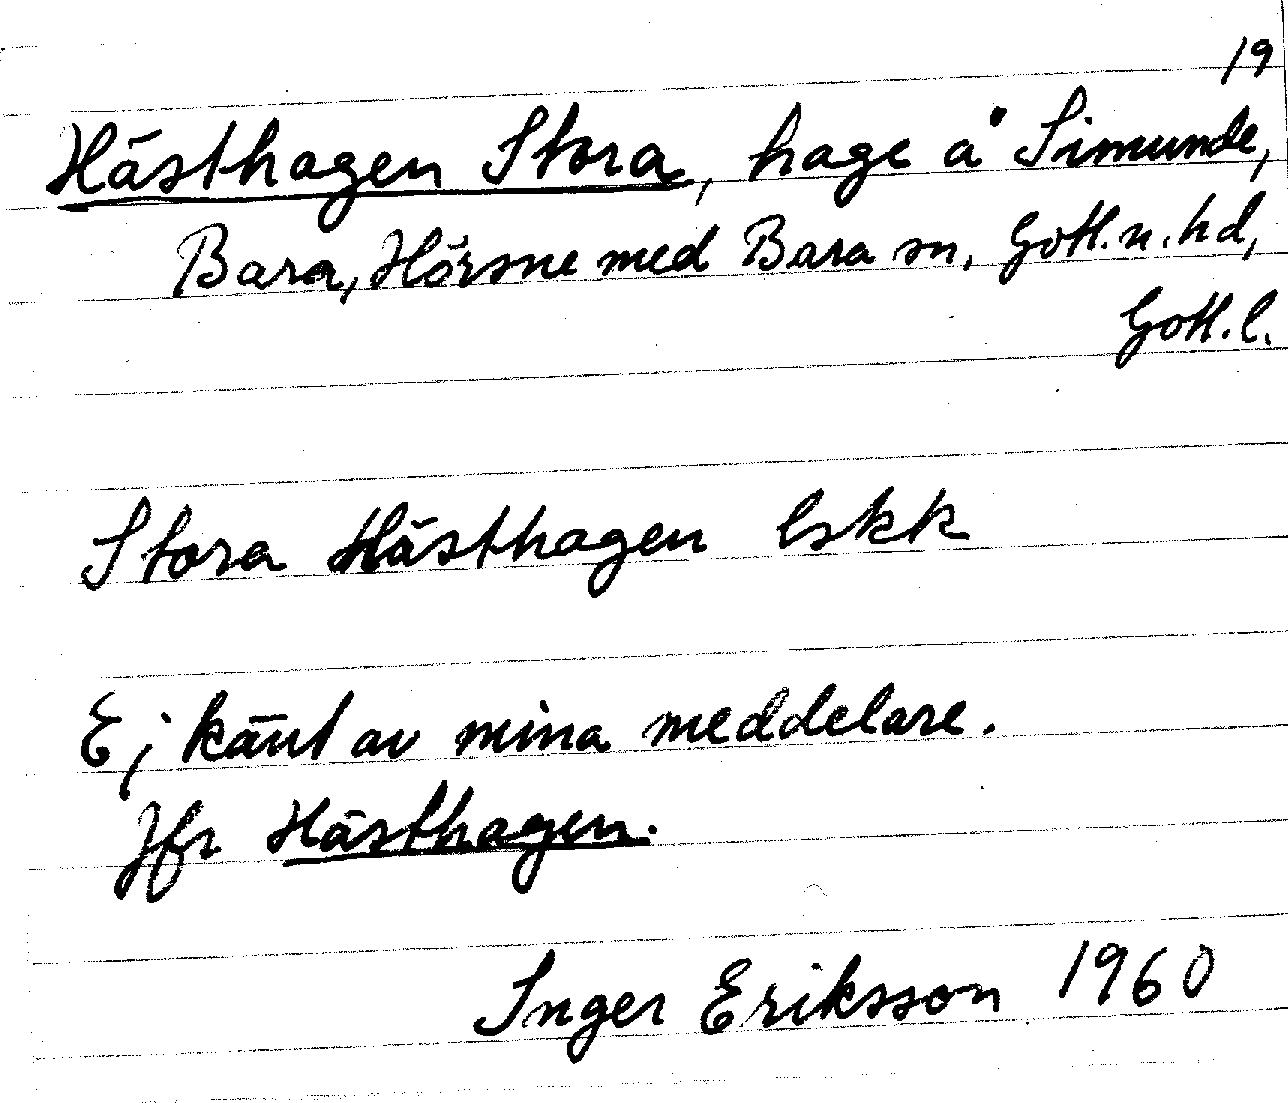 19
Hästhagen Stora, hage å Simunde,
Bara, Hörsne med Bara sn, Gotl. n. hd,
Gotl. l.
Stora Hästhagen lskk
Ej känt av mina meddelare.
Jfr Hästhagen.
Inger Eriksson 1960